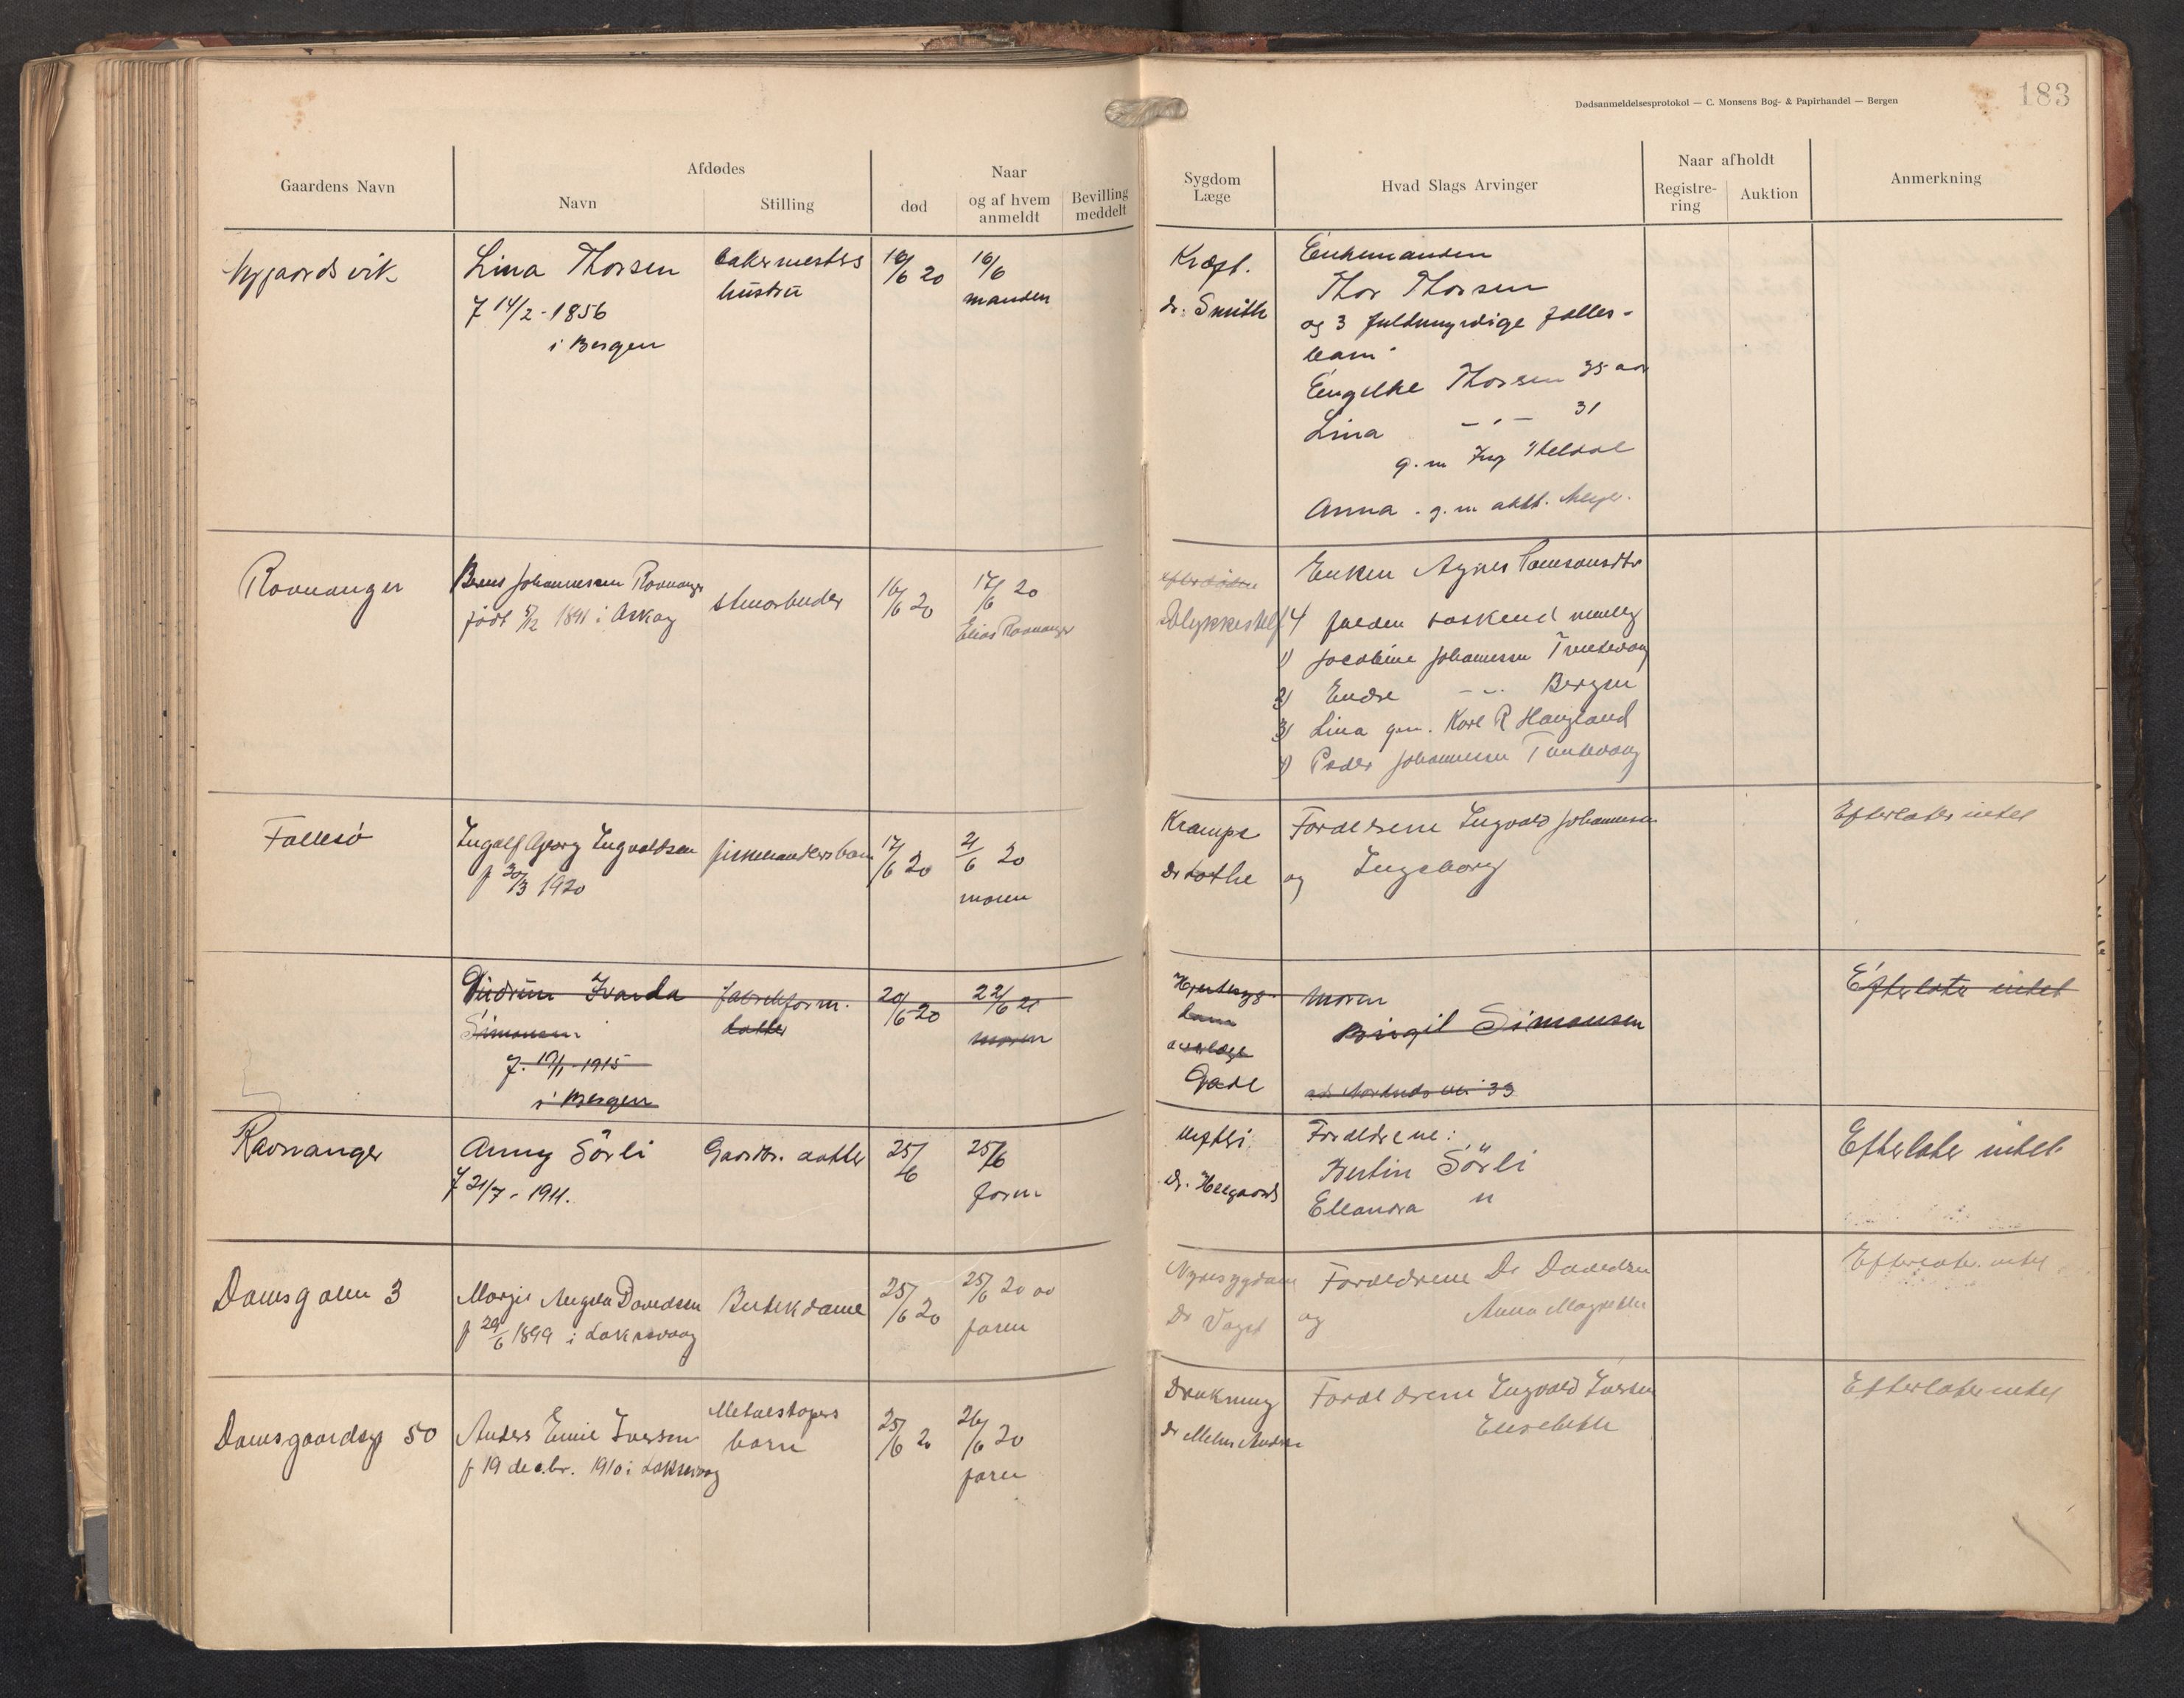 Dødsanmeldelsesprotokol — C. Monsens Bog- & Papirhandel — Bergen
183
Gaardens Navn
Afdødes
Navn
Stilling
død
Naar
og af hvem
anmeldt
Bevilling
meddelt
Sygdom
Læge
Hvad Slags Arvinger
Naar afholdt
Registre-
ring
Auktion
Anmerkning
Nygaardsvik
Lina Thorsen
f 14/2 - 1856
i Bergen
bakermesters
hustru
16/6 20
16/6
manden
Kræft.
dr. Smith
Enkemanden
Thor Thorsen
og 3 fuldmyndige fælles-
barn
Engelke Thorsen 35 aar
Lina - " - 31
g. m Ing
Anna . g. m
Ravnanger
Johannessen Ravnanger
født 5/12 i Askøy
stenarbeider
16/6 20
17/6 20
Elias Ravnanger
Ulykkestilf
Enken Agnes
4 søskend
1) Jacobine Johannessen
2) Endre - " - Bergen
3) Lina gm. Karl R Haugland
4) Peder Johannessen
Follesø
Ingolf Georg Ingvaldsen
f 20/3 1920
fiskehandlers barn
17/6 20
21/6 20
moren
Krampe
Dr Lothe
Forældrene Ingvald Johannessen
og Ingeborg
Efterlater intet
Gudrun Wanda
Simonsen
f. 19/1 - 1915
i Bergen
datter
20/6 20
22/6 20
moren
overlæge
Gade
Moren
Birgit Simonsen
33
Efterlater intet
Ravnanger
Anny Sörli
f 21/7 - 1911.
Gaardbr. datter
25/6
25/6
faren
Dr.
Forældrene:
Bertin Sörli
Eleanora "
Efterlater intet
Damsgalen 3
Margit Angela Davidsen
f 29/6 1899 i Laksevaag
Butikdame
25/6 20
25/6 20
faren
Nyresygdom
Dr Vogt
Forældrene Davidsen
og Anna
Efterlater intet
Damsgaardsg 50
Anders Emil Iversen
f 19 decbr. 1910 i Laksevaag
Metalstøpers
barn
25/6 20
26/6 20
faren
Drukning
Forældrene Ingvald Iversen
Elisebeth
Efterlater intet